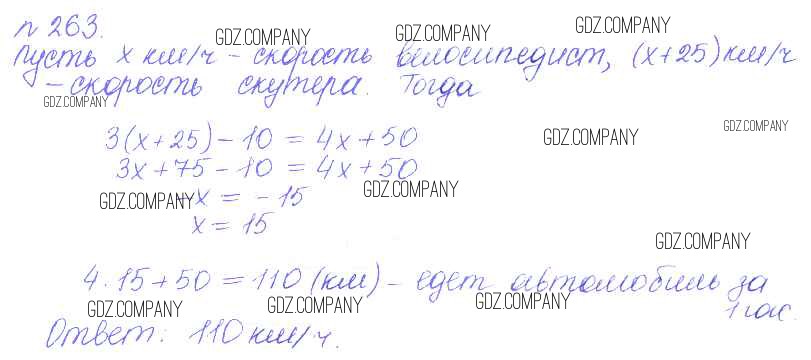 n 263.
GDZ.COMPANY GDZ.COMPANY GDZ.COMPANY
Пусть x км/ч - скорость велосипедист, (x+25) км/ч
- скорость скутера. Тогда
GDZ.COMPANY
3(x+25) - 10 = 4x+50
GDZ.COMPANY GDZ.COMPANY
3x+75 - 10 = 4x+50
-x = -15
GDZ.COMPANY GDZ.COMPANY
x = 15
GDZ.COMPANY
4·15+50 = 110 (км) - едет автомобиль за
1 час.
GDZ.COMPANY GDZ.COMPANY GDZ.COMPANY
Ответ: 110 км/ч.